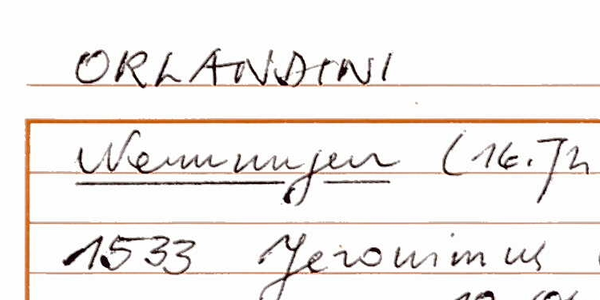 ORLANDINI
Nennungen (16. Jh
1533 Jeronimus